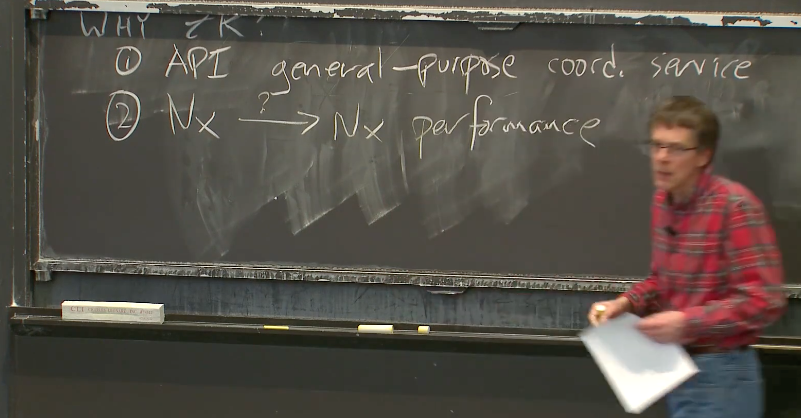 WHY ZK?
① API general-purpose coord. service
② Nx —?→ Nx performance